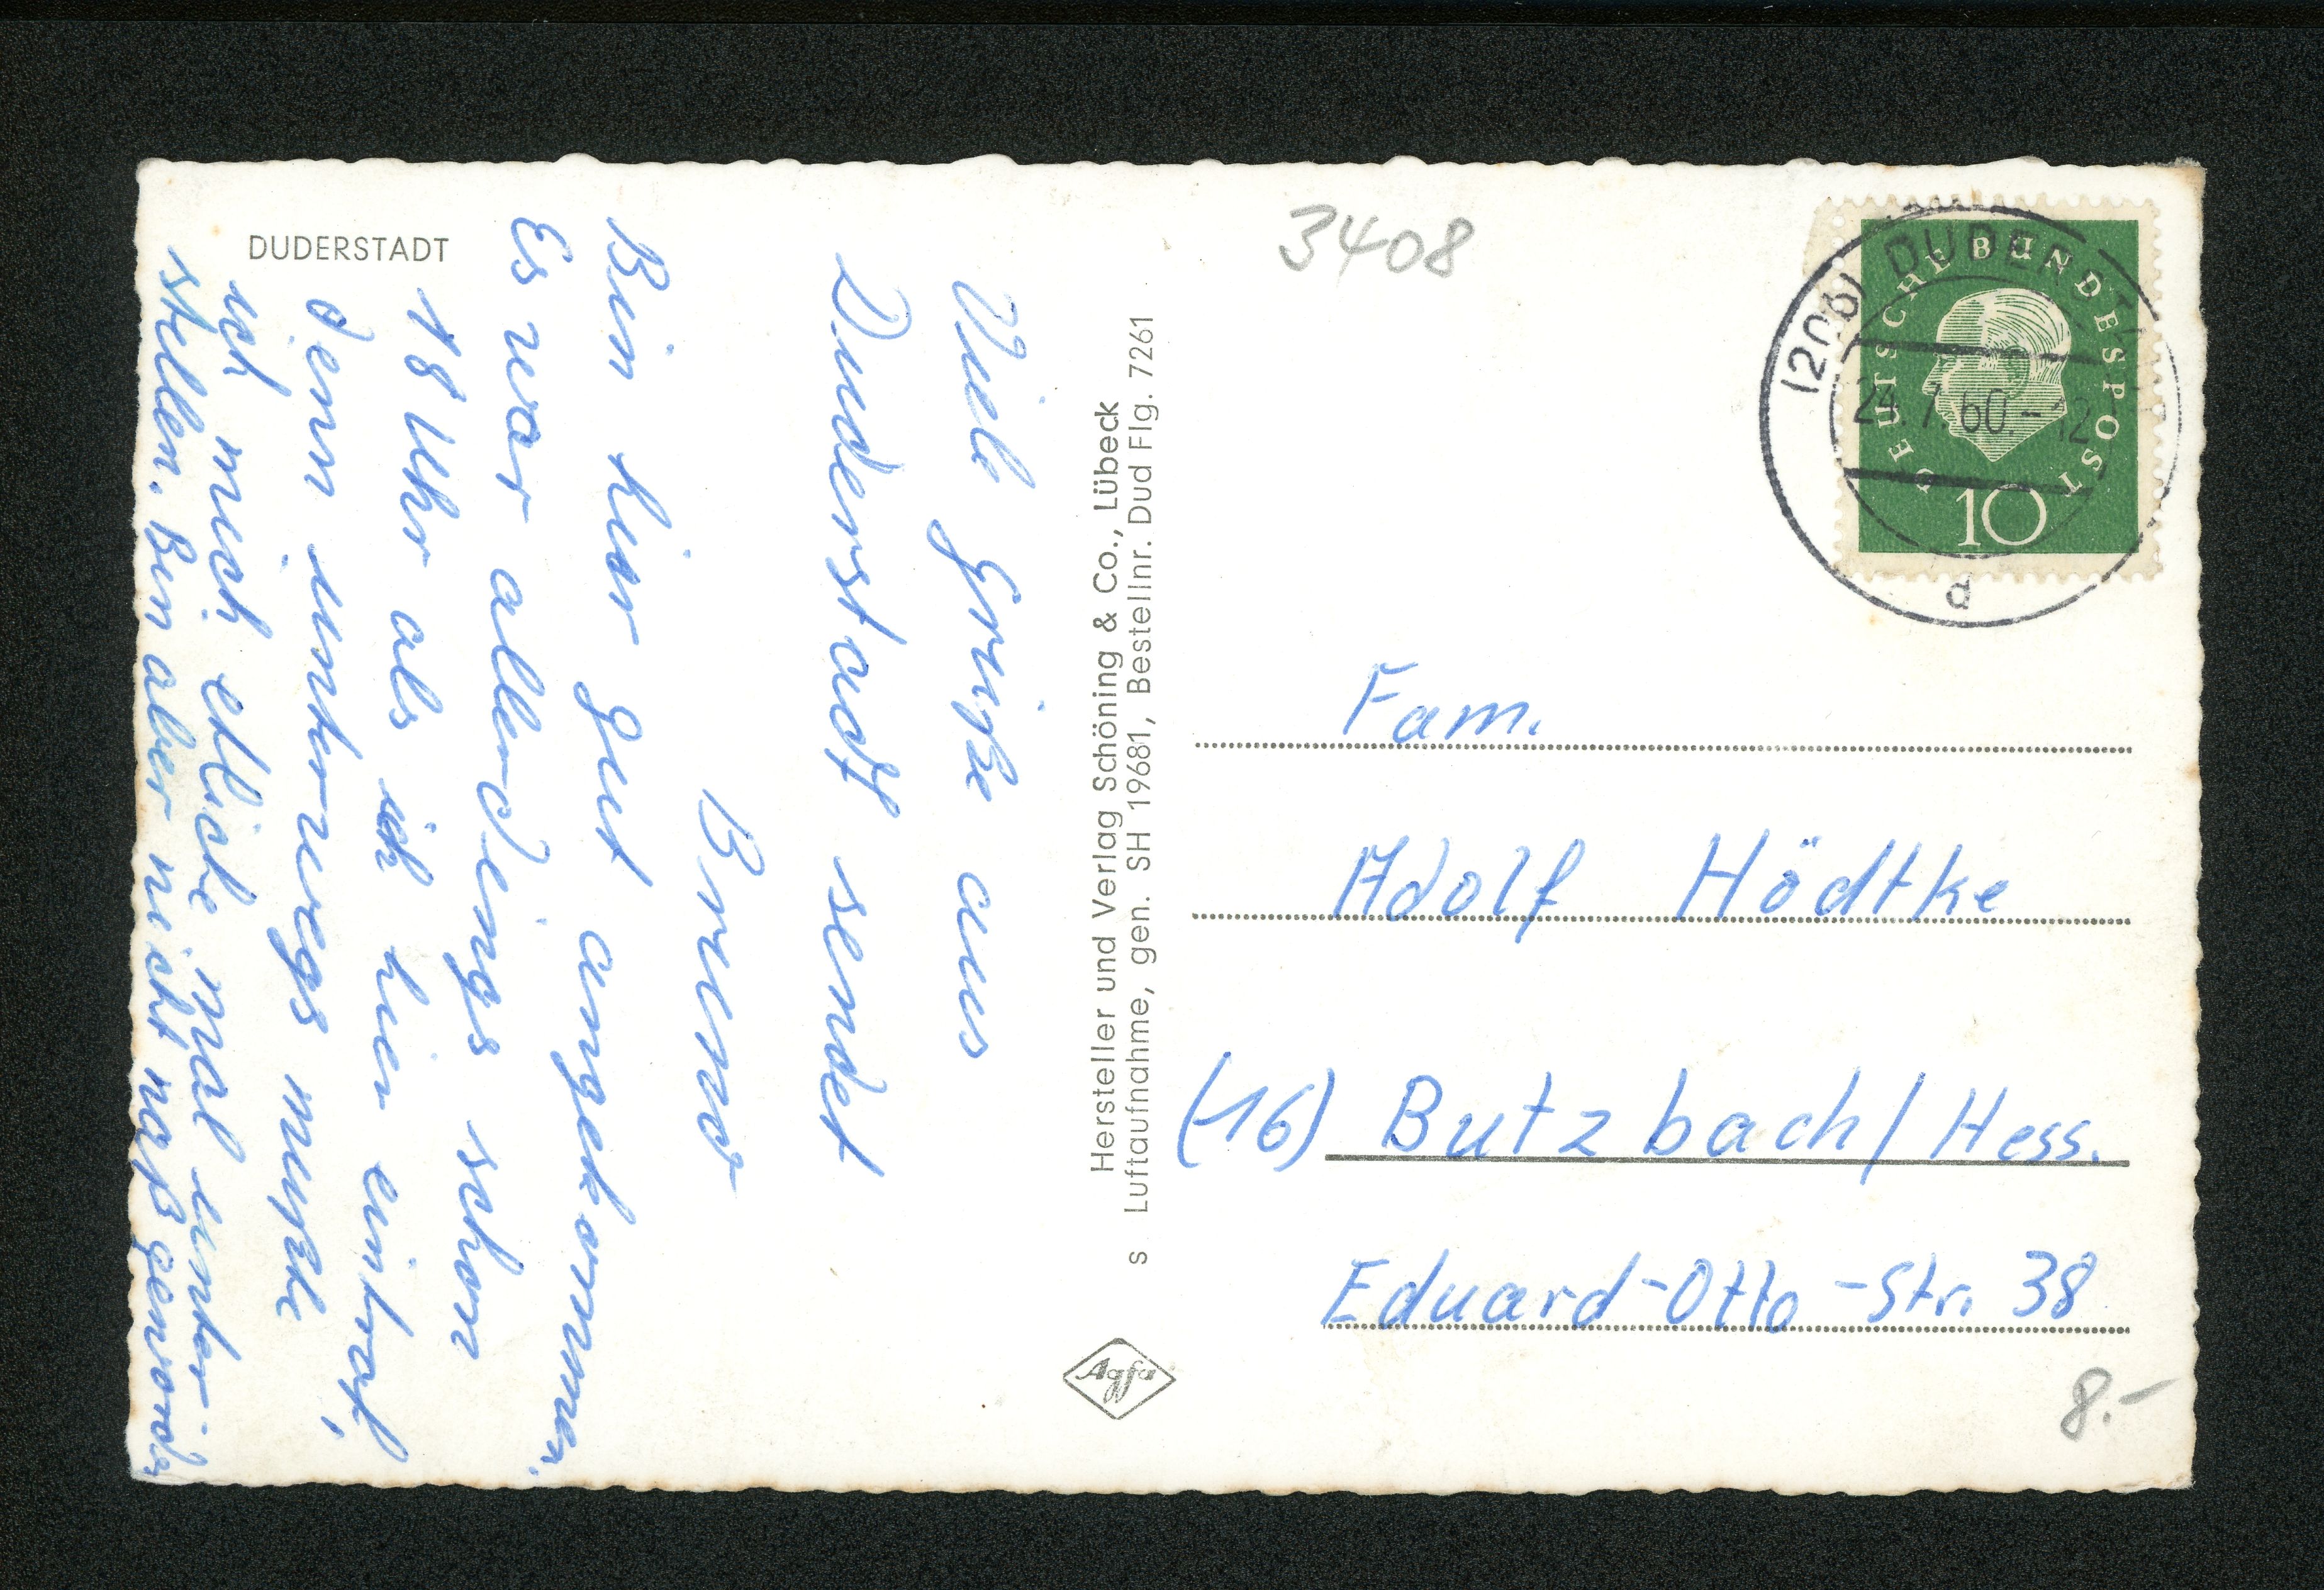 DUDERSTADT
Viele Grüße aus
Duderstadt sendet
Bruno
Bin hier gut angekommen.
Es war allerdings schon
18 Uhr als ich hier eintraf,
denn unterwegs mußte
ich mich etliche mal unter-
stellen. Bin aber nicht naß geworden
Hersteller und Verlag Schöning & Co., Lübeck
s Luftaufnahme, gen. SH 19681, Bestellnr. Dud Flg. 7261
Agfa
3408
DEUTSCHE BUNDESPOST
10
(20b) DUDERSTADT
24.7.60.-12
d
Fam.
Adolf Hödtke
(16) Butzbach/Hess.
Eduard-Otto-Str. 38
8.-